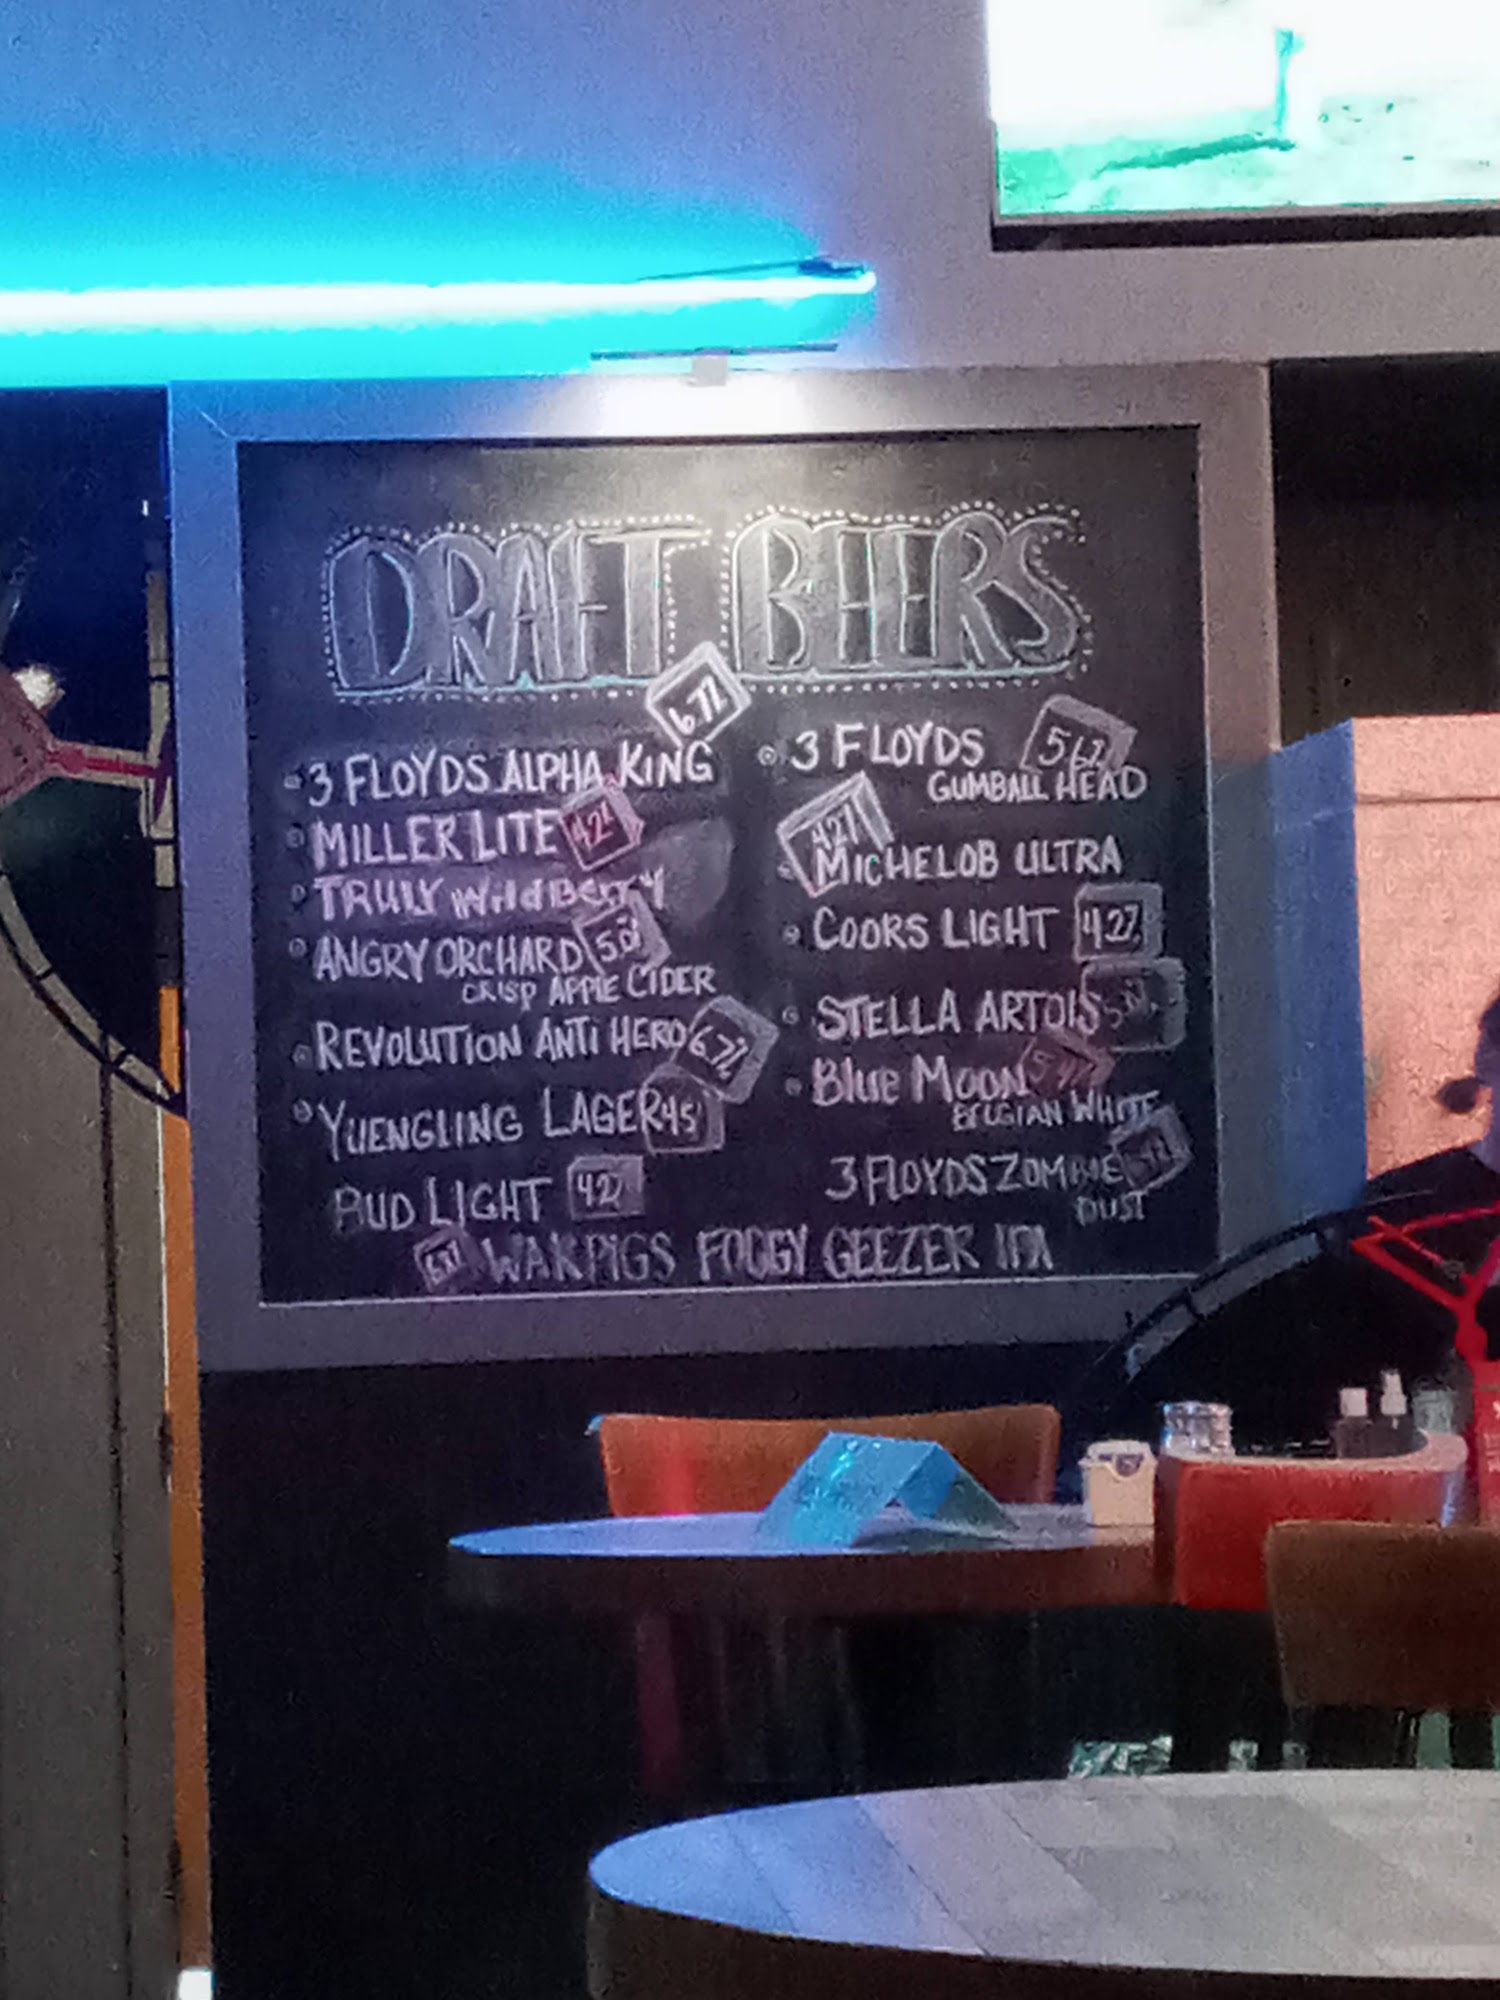 DRAFT BEERS
6.7%
3 FLOYDS ALPHA KING
MILLER LITE 42%
TRULY WildBERRY
ANGRY ORCHARD 5.0%
CRISP APPLE CIDER
REVOLUTION ANTI HERO 6.7%
YUENGLING LAGER 45
BUD LIGHT 42%
3 FLOYDS 5.6%
GUMBALL HEAD
4.2%
MICHELOB ULTRA
COORS LIGHT 4.2%
STELLA ARTOIS
Blue MOON
BELGIAN WHITE
3 FLOYDS ZOMBIE
DUST
WAKPIGS FOGGY GEEZER IPA